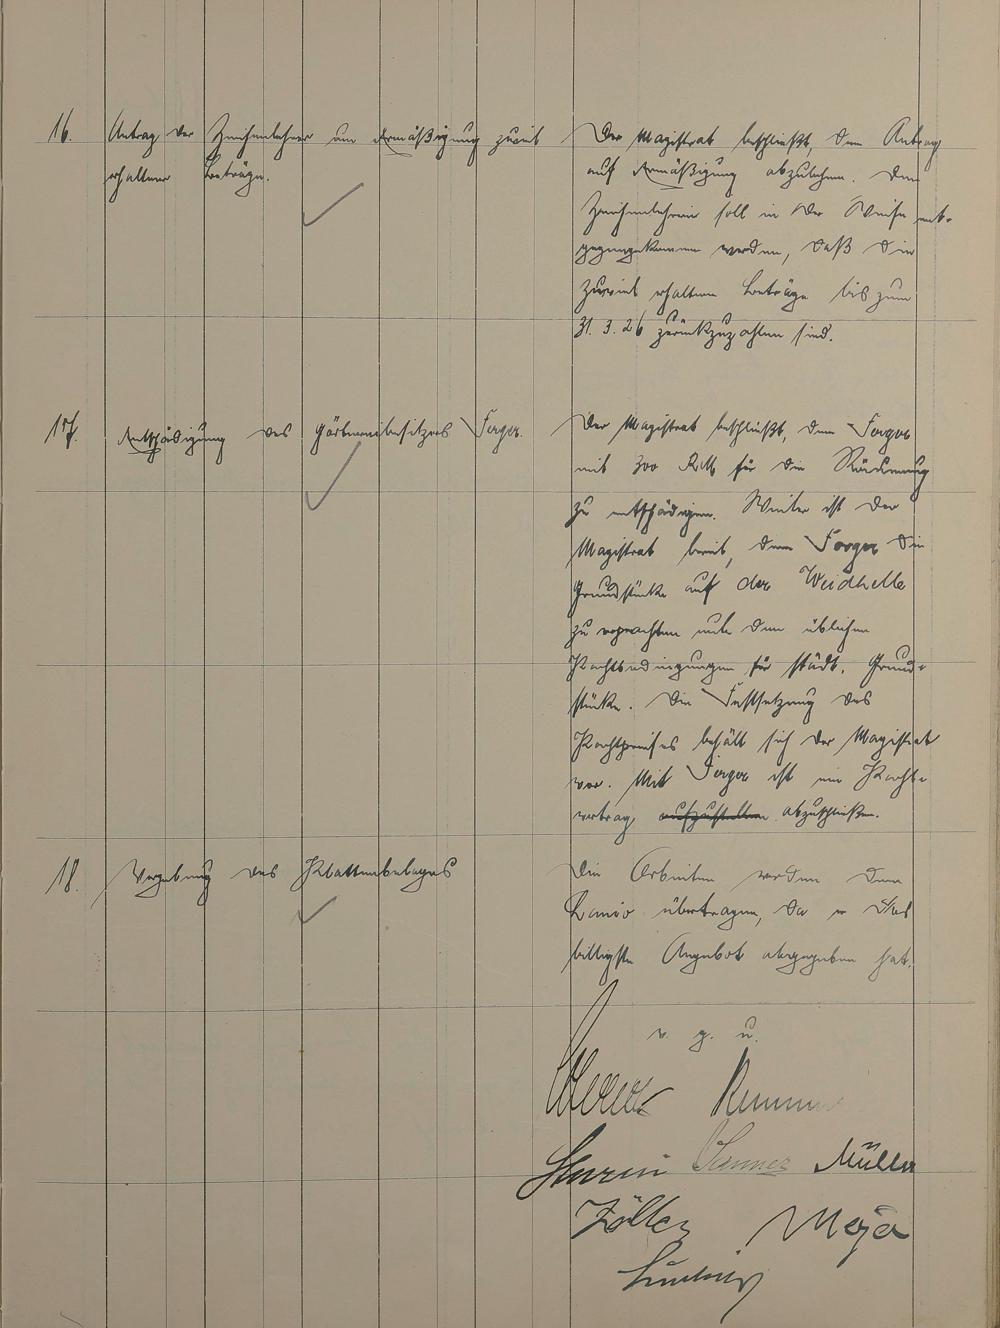 16. Antrag der Zeichenlehrer um Ermäßigung zuviel
erhaltener Beträge.
Der Magistrat beschließt, den Antrag
auf Ermäßigung abzulehnen. Den
Zeichenlehrern soll in der Weise ent-
gegengekommen werden, daß die
zuviel erhaltenen Beträge bis zum
31. 3. 26 zurückzuzahlen sind.
17. Entschädigung des Gärtnereibesitzers
Der Magistrat beschließt, dem
mit 300 RM für die Räumung
zu entschädigen. Weiter ist der
Magistrat bereit, dem die
Grundstücke auf der Weidhelle
zu verpachten unter den üblichen
Pachtbedingungen für städt. Grund-
stücke. Die Festsetzung des
Pachtpreises behält sich der Magistrat
vor. Mit ist ein Pacht-
vertrag aufzustellen abzuschließen.
18. Vergebung des Plattenbelages
Die Arbeiten werden dem
übertragen, da er das
billigste Angebot abgegeben hat.
v. g. u.
Müller